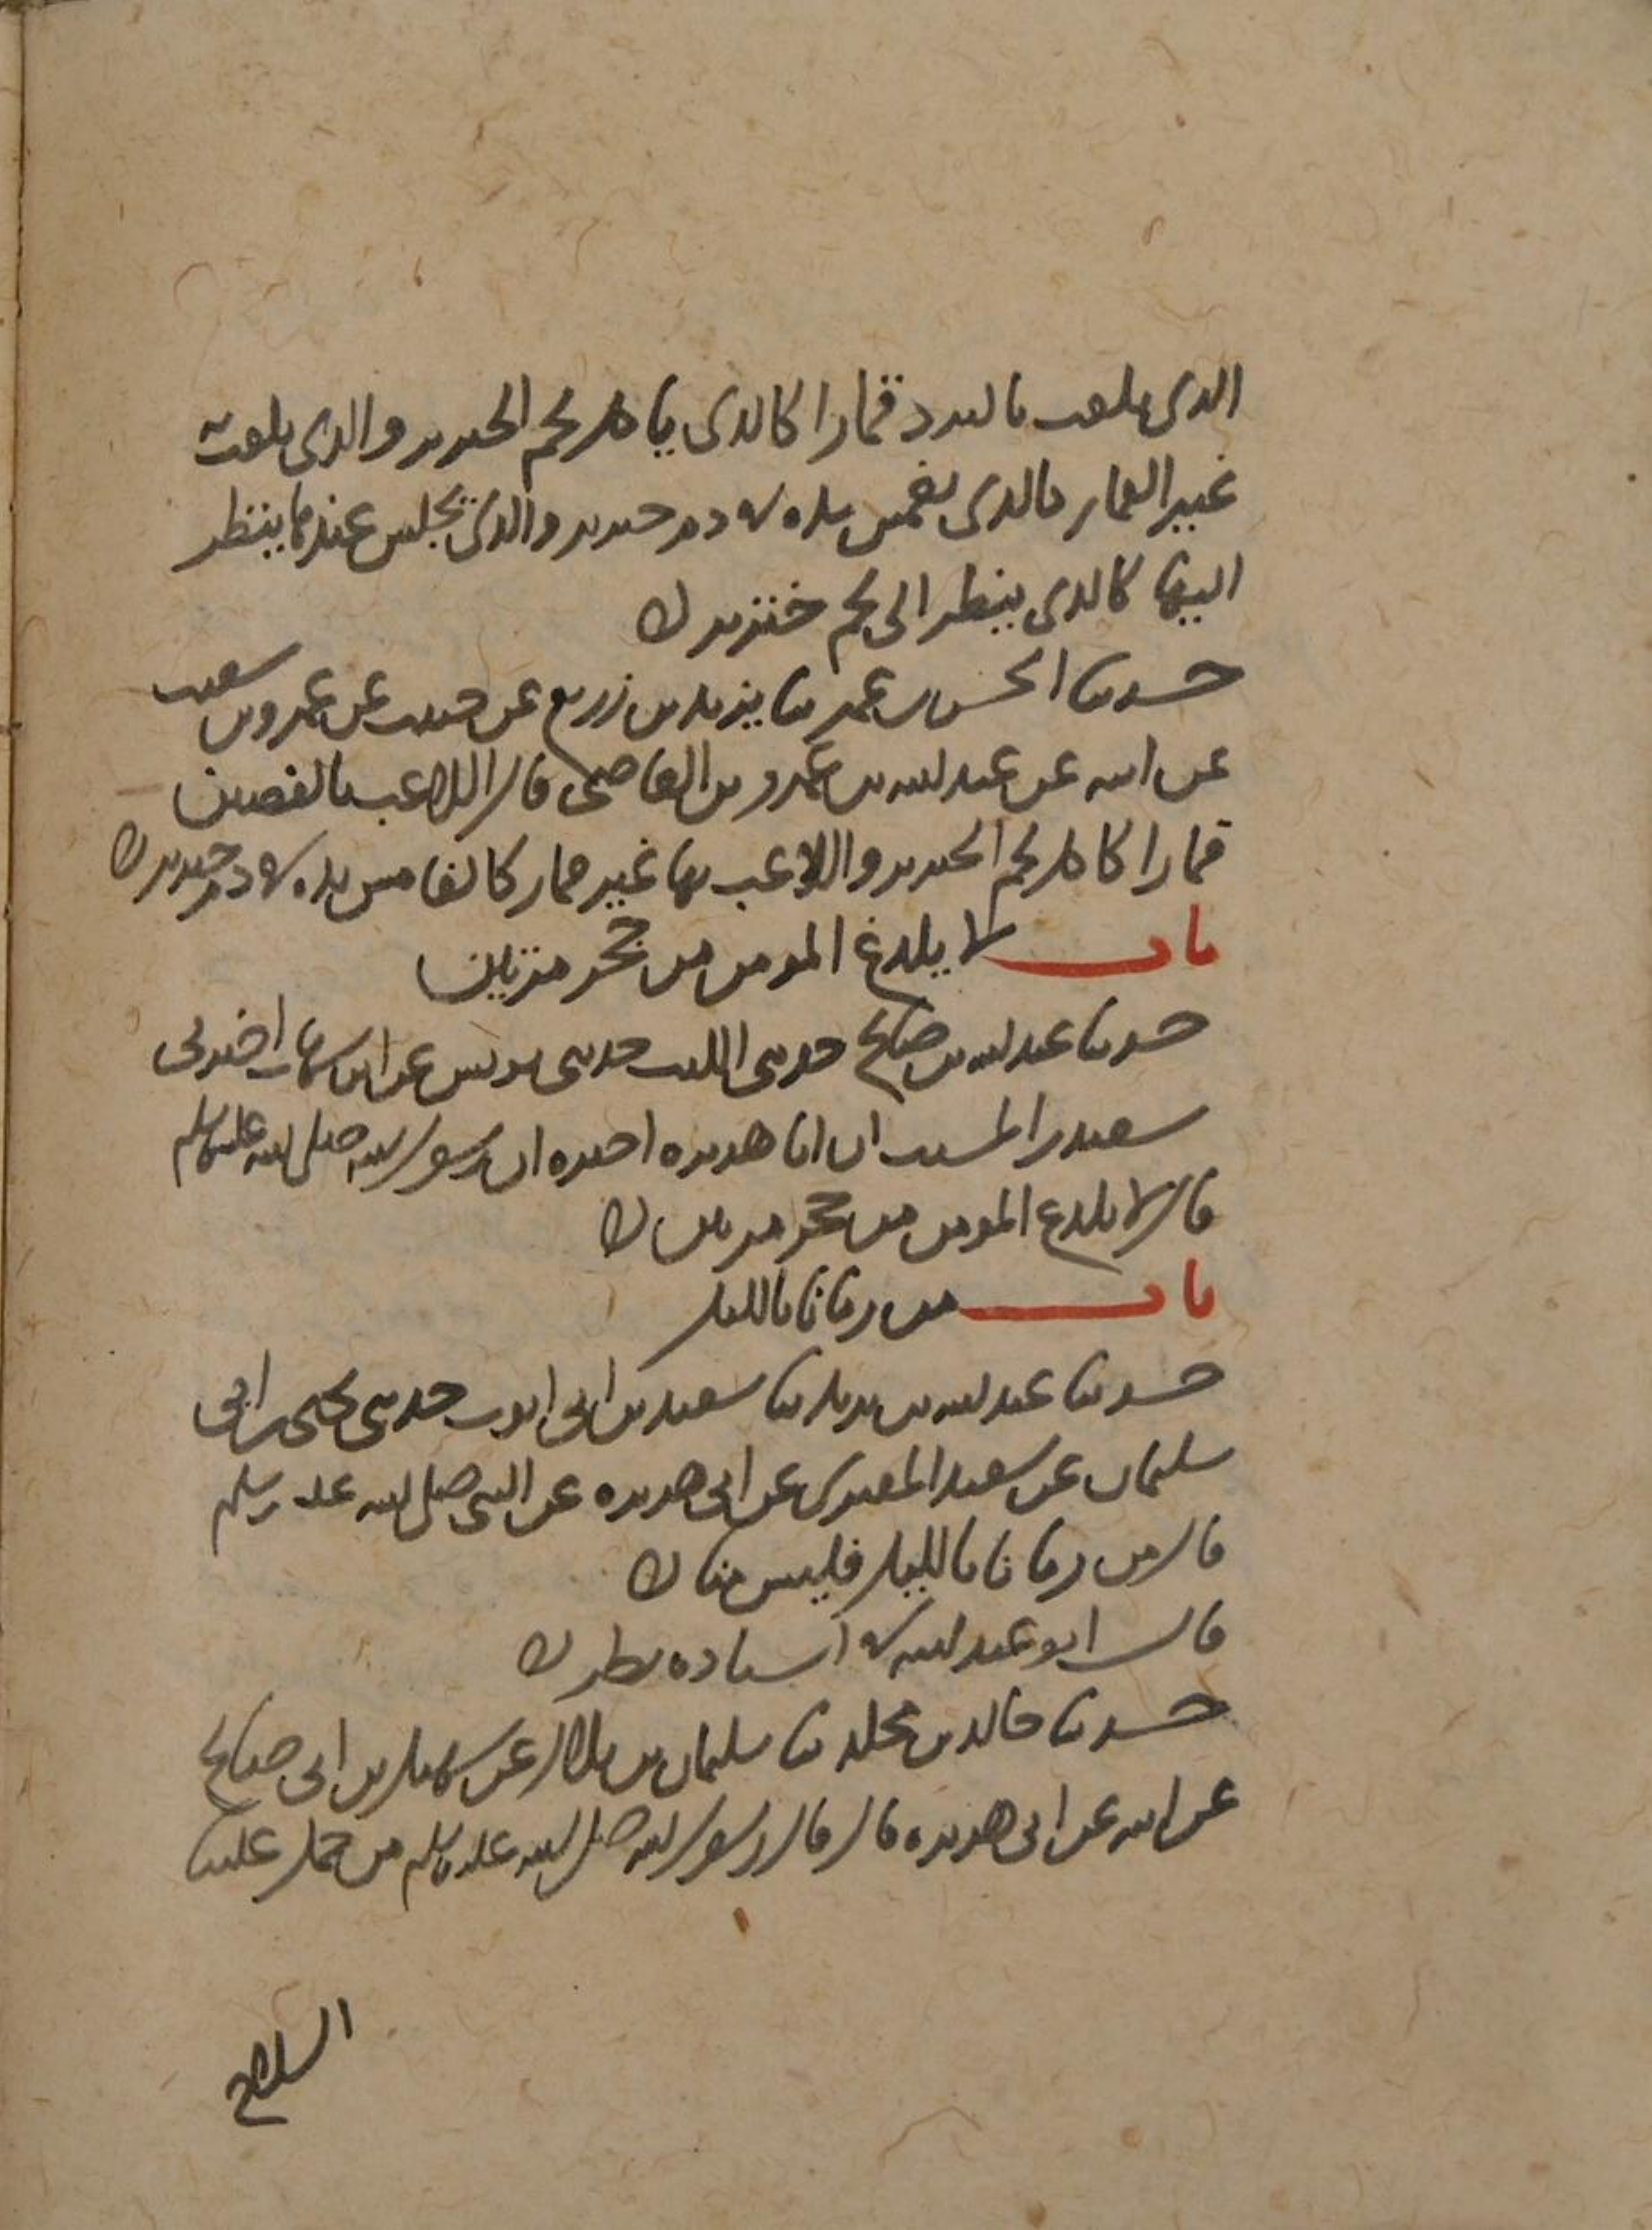 الذي يلعب بالنرد قمارا كالذي ياكل لحم الخنزير والذي يلعب به
غير القمار كالذي يغمس يده في دم خنزير والذي يجلس عندها ينظر
اليها كالذي ينظر الى لحم خنزير
حدثنا الحسن بن عمر ثنا يزيد بن زريع عن حبيب عن عمرو بن شعيب
عن ابيه عن عبد الله بن عمرو بن العاصي قال اللاعب بالفصين
قمارا كاكل لحم الخنزير واللاعب بها غير قمار كالغامس يده في دم خنزير
باب لا يلدغ المومن من جحر مرتين
حدثنا عبد الله بن صالح حدثني الليث حدثني يونس عن ابن شهاب اخبرني
سعيد بن المسيب ان ابا هريرة اخبره ان رسول الله صلى الله عليه وسلم
قال لا يلدغ المومن من جحر مرتين
باب من رمانا بالليل
حدثنا عبد الله بن يزيد ثنا سعيد بن ابي ايوب حدثني يحيى بن ابي
سليمان عن سعيد المقبري عن ابي هريرة عن النبي صلى الله عليه وسلم
قال من رمانا بالليل فليس منا
قال ابو عبد الله في اسناده نظر
حدثنا خالد بن مخلد ثنا سليمان بن بلال عن سهيل بن ابي صالح
عن ابيه عن ابي هريرة قال قال رسول الله صلى الله عليه وسلم من حمل علينا
السلاح